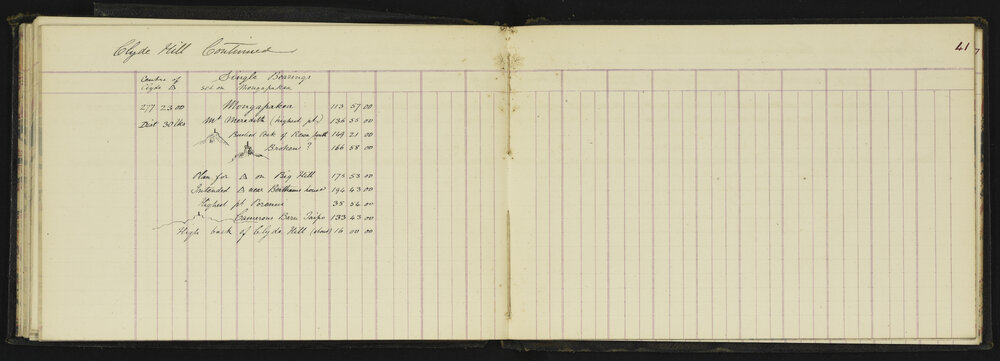 Clyde Hill Continued
41
7
Centre of
Clyde Δ
Single Bearings
set on Mongapakea
277 23 00 Mongapakea 113 57 00
Dist 30 lks Mt Meredith (highest pt.) 136 55 00
Bushed Peak of Rewa South 149 21 00
Broken ? 166 58 00
Plan for Δ on Big Hill 175 53 00
Intended Δ near house 194 43 00
Highest pt 35 56 00
Camerons Bare Taipo 133 43 00
High back of Clyde Hill (about) 16 00 00